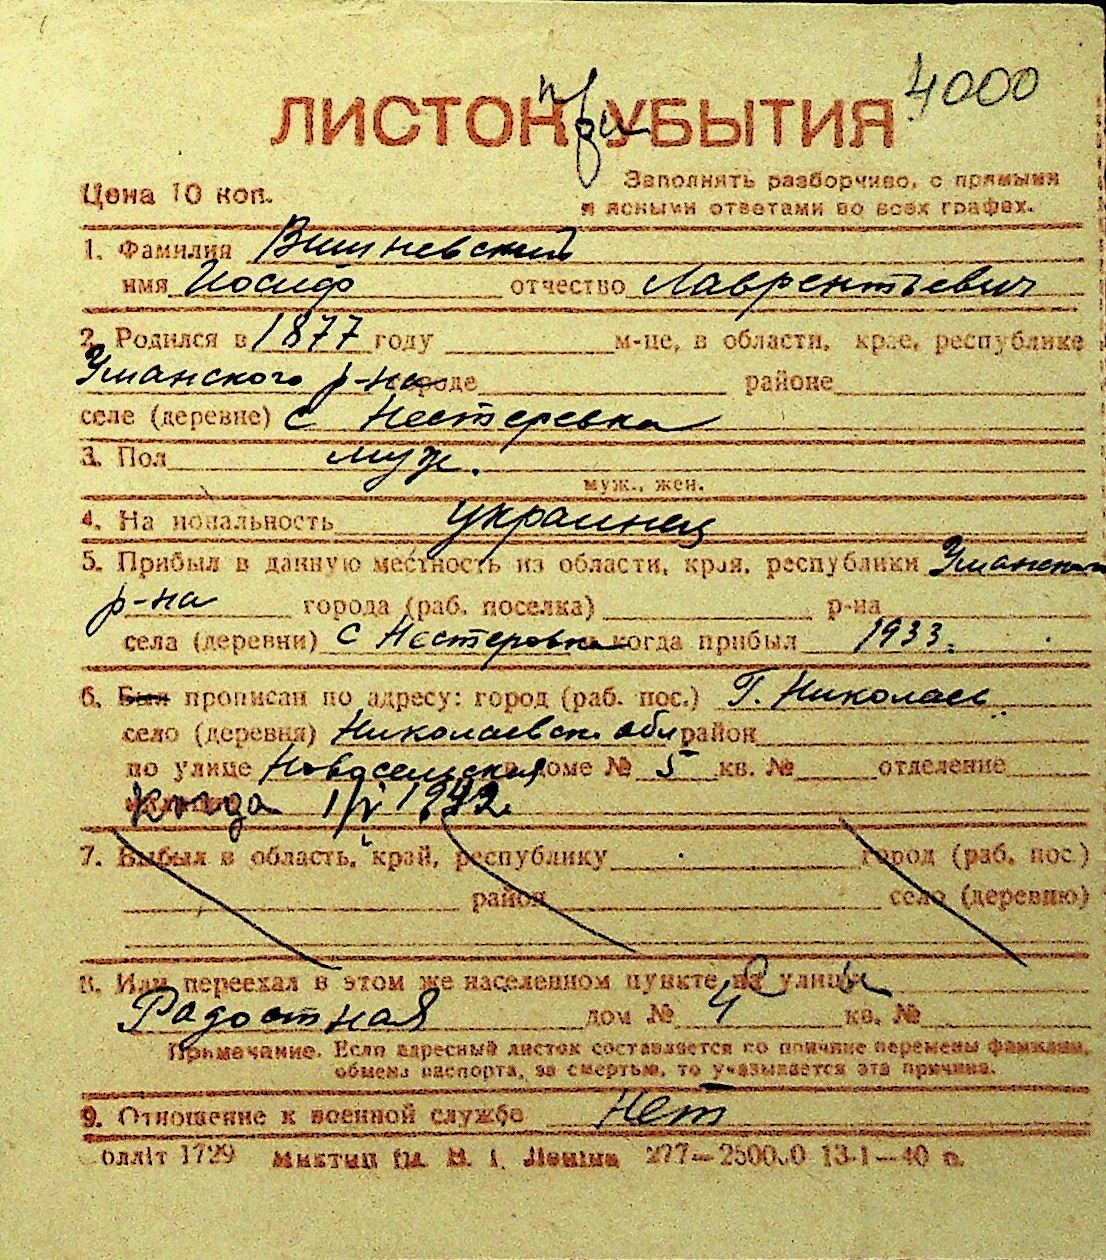 4000
ЛИСТОК при УБЫТИЯ
Цена 10 коп.
Заполнять разборчиво, с прямыми
и ясными ответами во всех графах.
1. Фамилия Вишневский
имя Иосиф отчество Лаврентьевич
2. Родился в 1877 году м-це, в области, крае, республике
Уманского р-на городе районе
селе (деревне) с Нестеревка
3. Пол муж.
муж., жен.
4. Национальность украинец
5. Прибыл в данную местность из области, края, республики Уманский
р-на города (раб. поселка) р-на
села (деревни) с Нестеровка когда прибыл 1933.
6. Был прописан по адресу: город (раб. пос.) г. Николаев
село (деревня) Николаевск. обл район
по улице Новосельская в доме № 5 кв. № отделение
Когда 1/V 1942.
7. Выбыл в область, край, республику город (раб. пос.)
район село (деревню)
8. Или переехал в этом же населенном пункте улицы
Радостная дом № 4 кв. №
Примечание. Если адресный листок составляется по причине перемены фамилии,
обмена паспорта, за смертью, то указывается эта причина.
9. Отношение к военной службе Нет
олліт 1729 Леніна 277—2500.0 13-1—40 п.